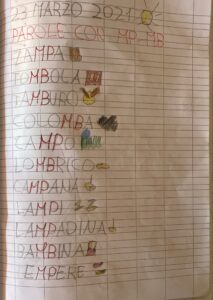 23 MARZO 2021
PAROLE CON MP-MB
ZAMPA
TOMBOLA
TAMBURO
COLOMBA
CAMPO
LOMBRICO
CAMPANA
LAMPI
LAMPADINA
BAMBINA
TEMPERE